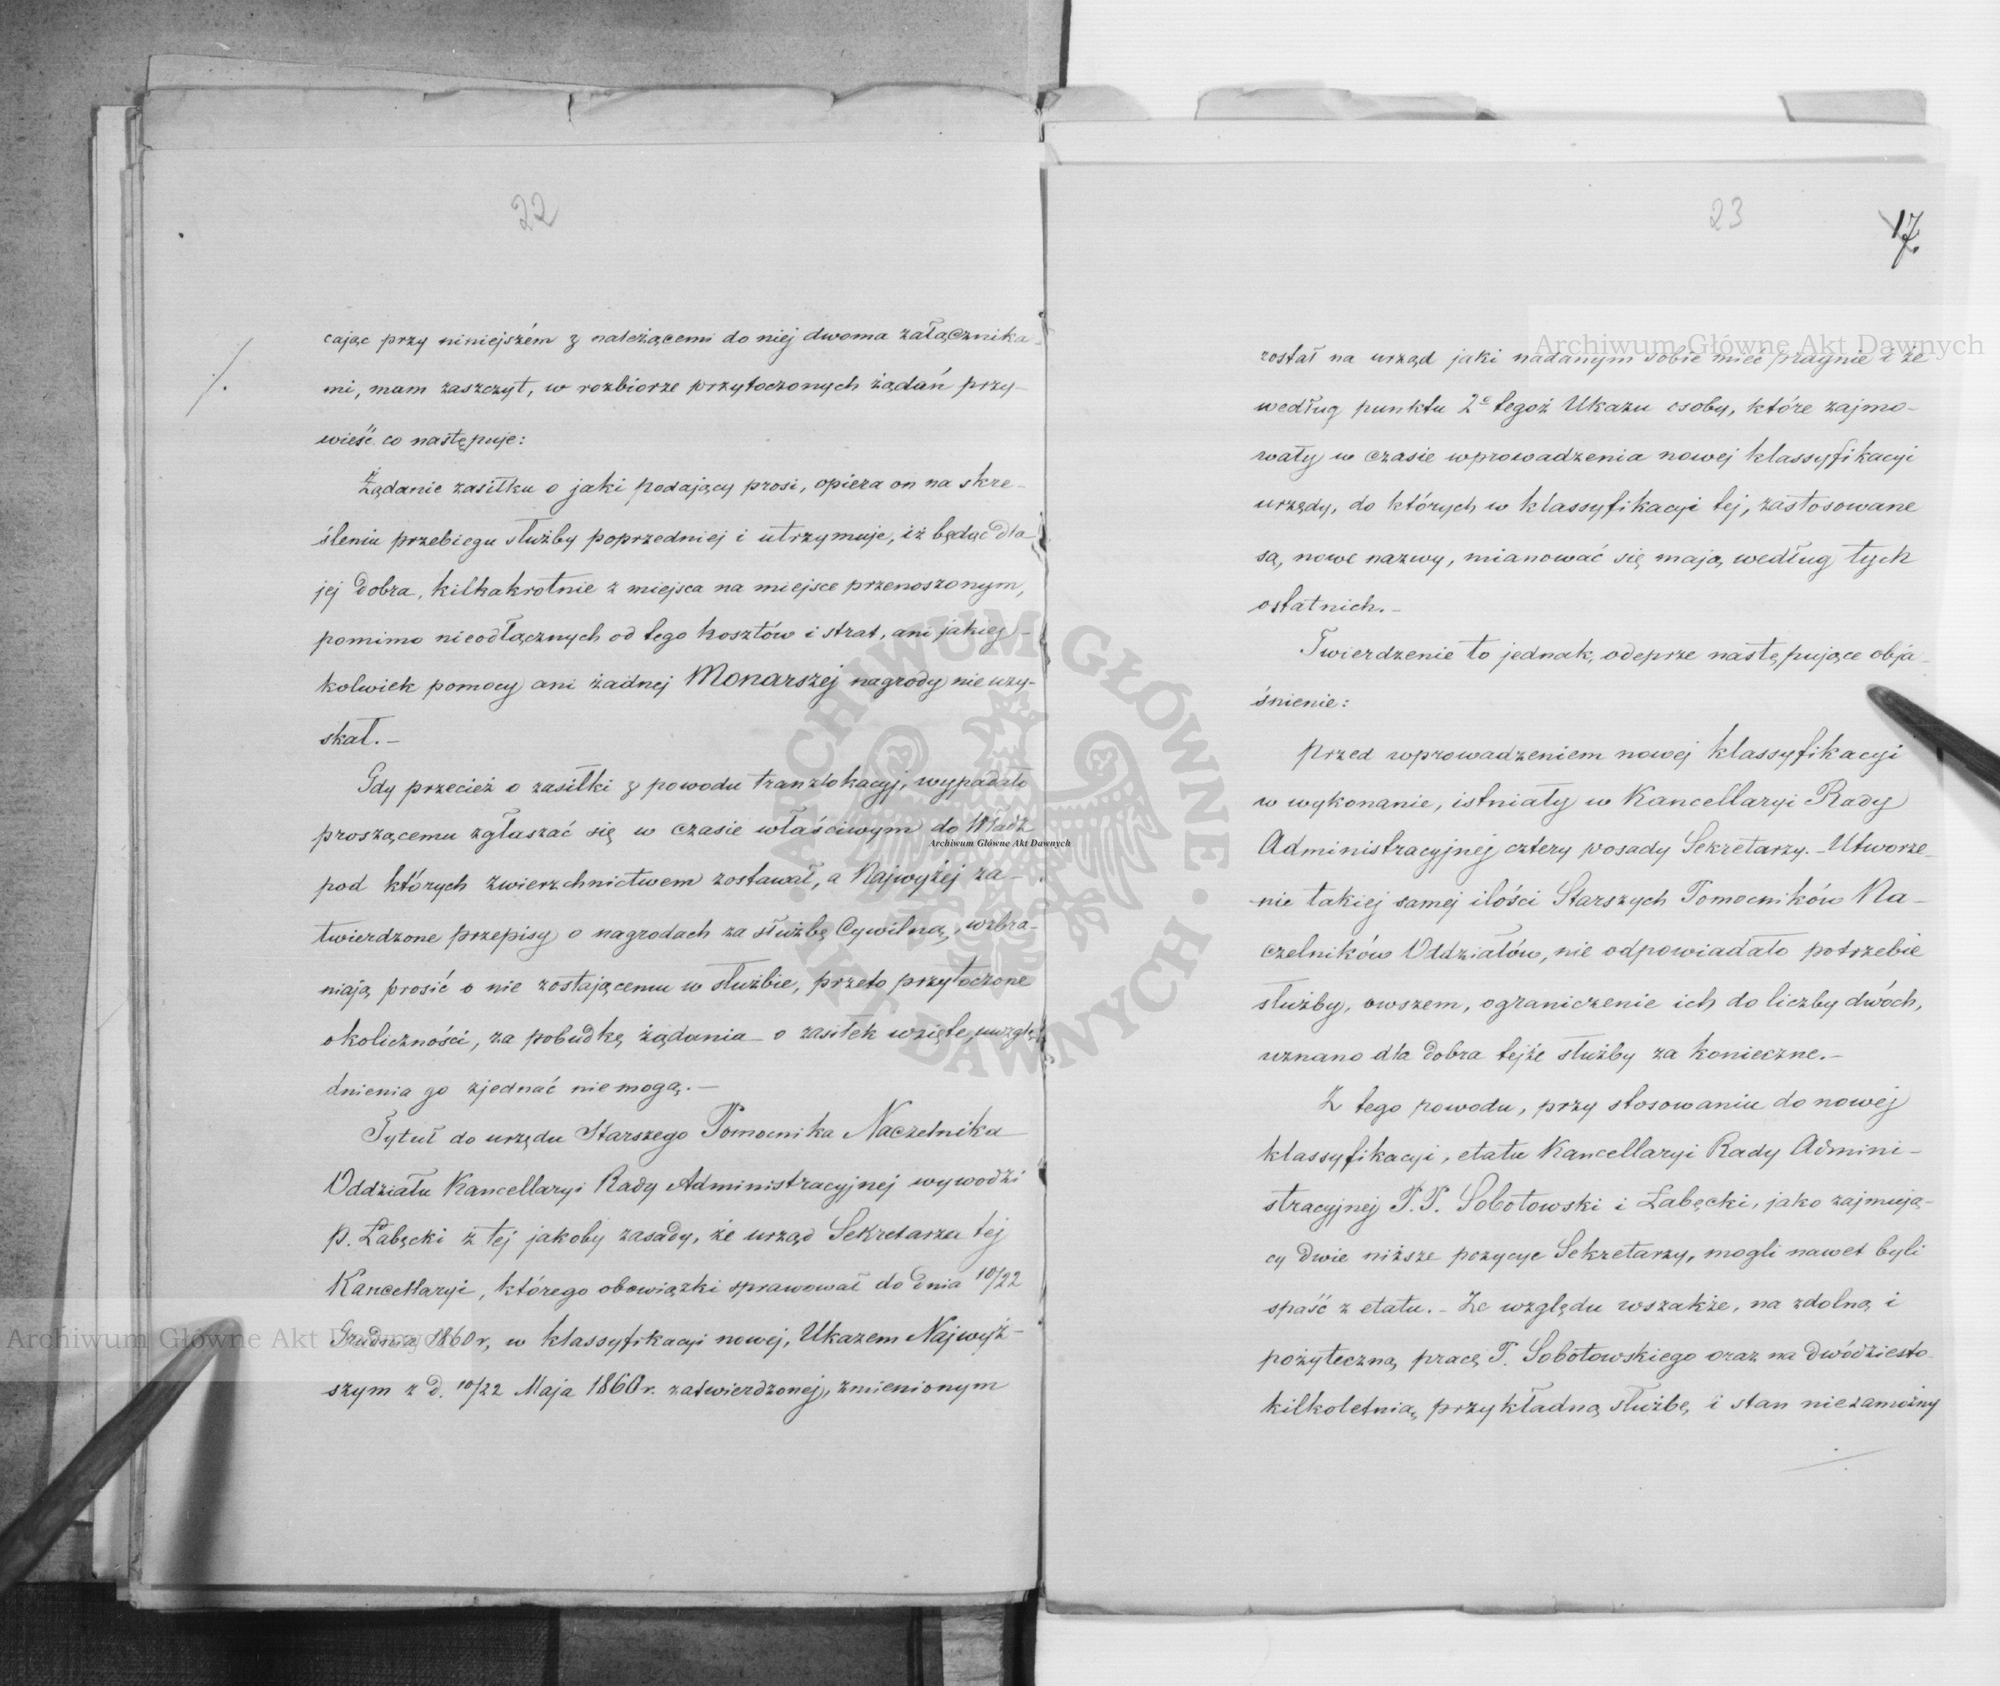 22
cając przy niniejszém z należącemi do niej dwoma załącznika-
mi, mam zaszczyt, w rozbiorze przytoczonych żądań przy-
wieść co następuje:
Żądanie zasiłku o jaki podający prosi, opiera on na skre-
śleniu przebiegu służby poprzedniej i utrzymuje, iż będąc dla
jej dobra, kilkakrotnie z miejsca na miejsce przenoszonym,
pomimo nieodłącznych od tego kosztów i strat, ani jakiej-
kolwiek pomocy ani żadnej Monarszej nagrody nie uzy-
skał.-
Gdy przecież o zasiłki z powodu tranzlokacyj, wypadało
proszącemu zgłaszać się w czasie właściwym do Władz
pod których zwierzchnictwem zostawał, a Najwyżej za-
twierdzone przepisy o nagrodach za służbę Cywilną, wzbra-
niają prosić o nie zostającemu w służbie, przeto przytoczone
okoliczności, za pobudkę żądania o zasiłek wzięte, uwzglę-
dnienia go zjednać nie mogą.-
Tytuł do urzędu Starszego Pomocnika Naczelnika
Oddziału Kancellaryi Rady Administracyjnej wywodzi
p. Łabęcki z tej jakoby zasady, że urząd Sekretarza tej
Kancellaryi, którego obowiązki sprawował do dnia 10/22
Grudnia 1860 r, w klassyfikacyi nowej, Ukazem Najwyż-
szym z d. 10/22 Maja 1860 r. zatwierdzonej, zmienionym
23
17.
został na urząd jaki nadanym sobie mieć pragnie i że
według punktu 2e tegoż Ukazu osoby, które zajmo-
wały w czasie wprowadzenia nowej klassyfikacyi
urzędy, do których w klassyfikacyi tej, zastosowane
są, nowe nazwy, mianować się mają, według tych
ostatnich.-
Twierdzenie to jednak, odeprze następujące obja-
śnienie:
Przed wprowadzeniem nowej klassyfikacyi
w wykonanie, istniały w Kancellaryi Rady
Administracyjnej cztery posady Sekretarzy.- Utworze-
nie takiej samej ilości Starszych Pomocników Na-
czelników Oddziałów, nie odpowiadało potrzebie
służby, owszem, ograniczenie ich do liczby dwóch,
uznano dla dobra tejże służby za konieczne.-
Z tego powodu, przy stosowaniu do nowej
klassyfikacyi, etatu Kancellaryi Rady Admini-
stracyjnej P.P. Sobotowski i Łabęcki, jako zajmują-
cy dwie niższe pozycye Sekretarzy, mogli nawet byli
spaść z etatu.- Ze względu wszakże, na zdolną i
pożyteczną, pracę P. Sobotowskiego oraz na dwódziesto
kilkoletnią, przykładną służbę, i stan niezamożny
Archiwum Główne Akt Dawnych
Archiwum Główne Akt Dawnych
Archiwum Główne Akt Dawnych
ARCHIWUM GŁÓWNE · AKT DAWNYCH ·